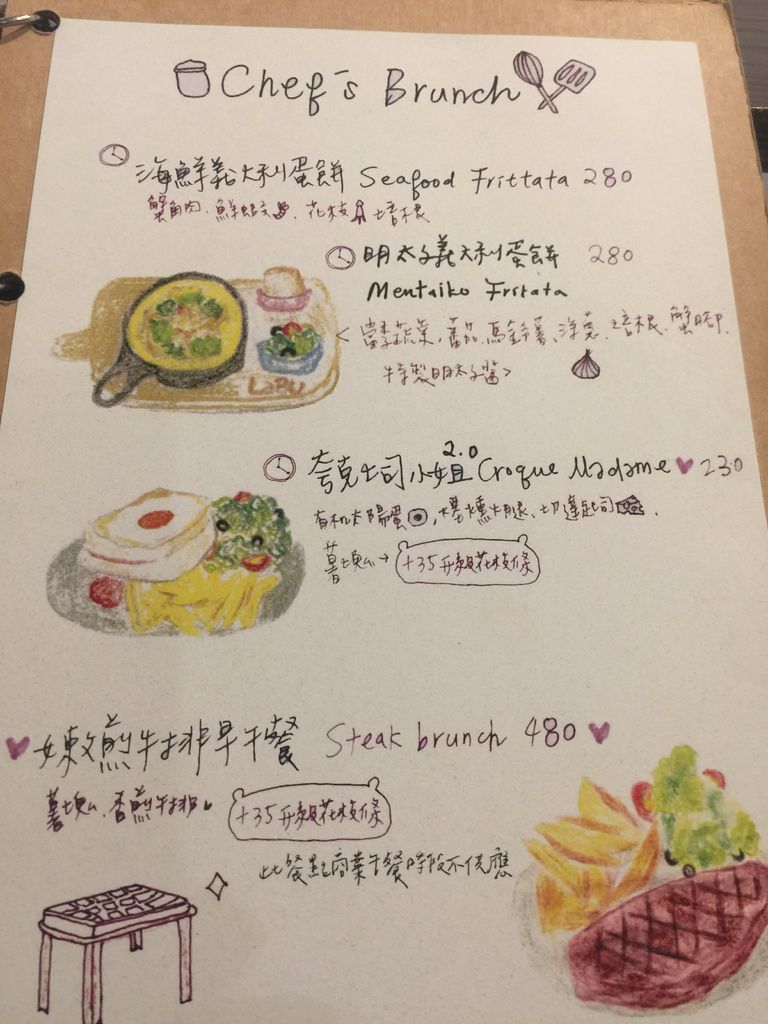 Chef's Brunch
海鮮義大利蛋餅 Seafood Frittata 280
蟹角肉、鮮蝦、花枝、培根
明太子義大利蛋餅 280
Mentaiko Frttata
<當季蔬菜、蕃茄、馬鈴薯、洋蔥、培根、蟹腳、
特製明太子醬>
LAPU
夸克土司小姐 2.0 Croque Madame 230
有机太陽蛋、煙燻火腿、切達起司、
薯塊→ +35升級花枝條
嫩煎牛排早午餐 Steak brunch 480
薯塊、香煎牛排 +35升級花枝條
此餐點商業午餐時段不供應